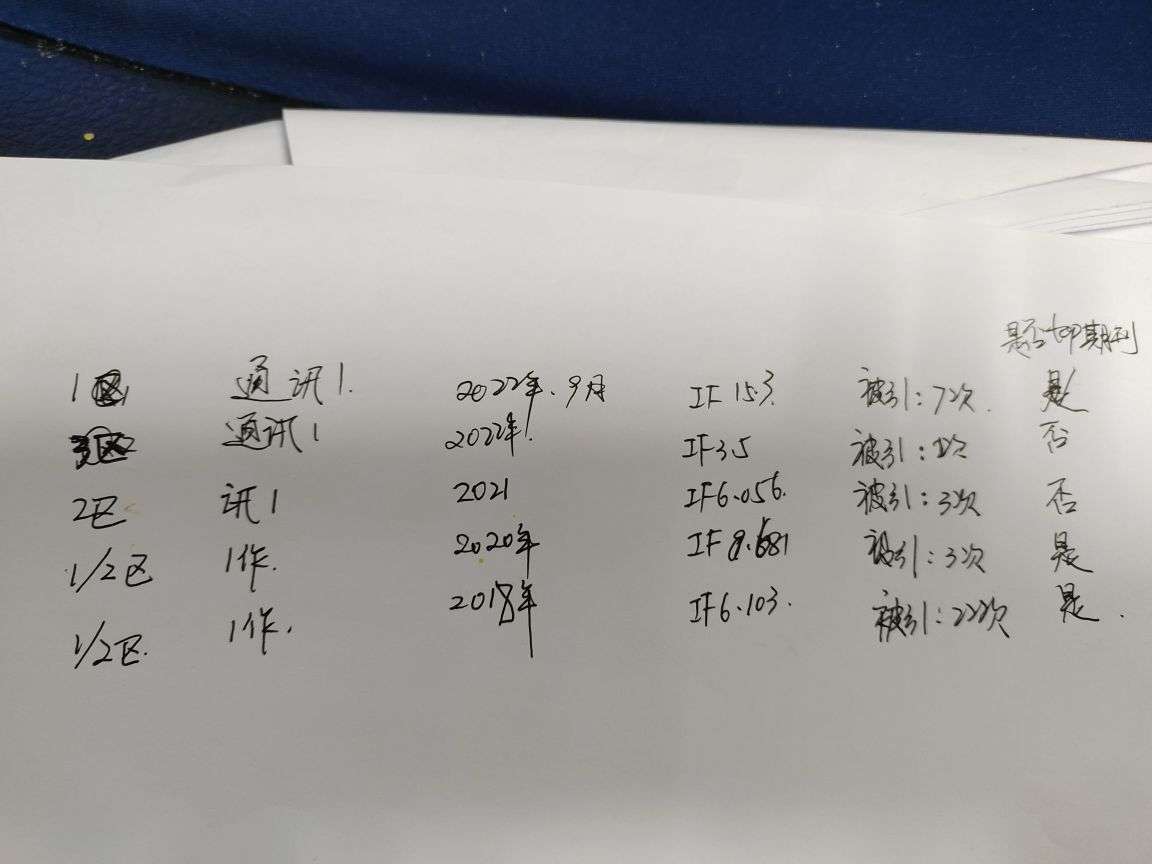 是否top期刊
1区 通讯1. 2022年.9月 IF 15.3 被引:7次. 是
3区 通讯1 2022年. IF3.5 被引: 次 否
2区 讯1 2021 IF6.056. 被引:3次 否
1/2区 1作. 2020年 IF 8.681 被引:3次 是
1/2区. 1作. 2018年 IF6.103. 被引:22次 是.